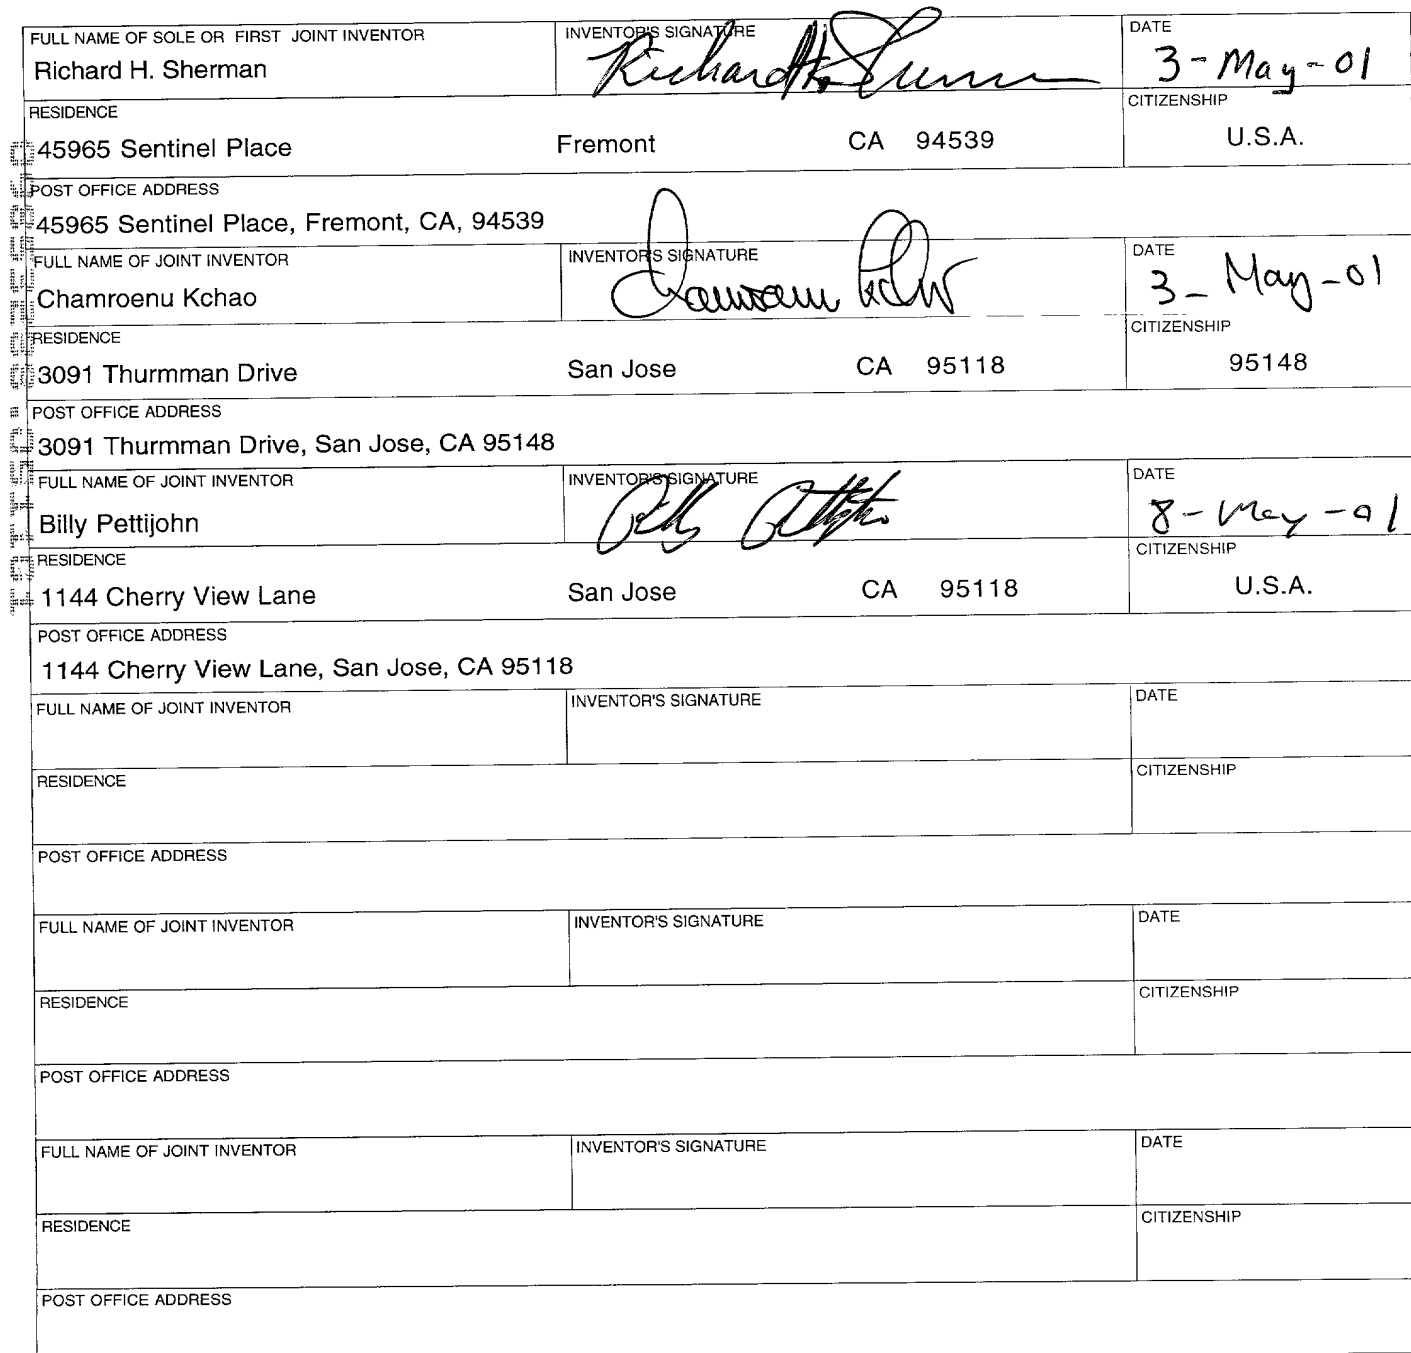 FULL NAME OF SOLE OR FIRST JOINT INVENTOR INVENTOR'S SIGNATURE DATE
Richard H. Sherman Richard H. Sherman 3-May-01
RESIDENCE CITIZENSHIP
45965 Sentinel Place Fremont CA 94539 U.S.A.
POST OFFICE ADDRESS
45965 Sentinel Place, Fremont, CA, 94539
FULL NAME OF JOINT INVENTOR INVENTOR'S SIGNATURE DATE
Chamroenu Kchao 3-May-01
RESIDENCE CITIZENSHIP
3091 Thurmman Drive San Jose CA 95118 95148
POST OFFICE ADDRESS
3091 Thurmman Drive, San Jose, CA 95148
FULL NAME OF JOINT INVENTOR INVENTOR'S SIGNATURE DATE
Billy Pettijohn 8-May-01
RESIDENCE CITIZENSHIP
1144 Cherry View Lane San Jose CA 95118 U.S.A.
POST OFFICE ADDRESS
1144 Cherry View Lane, San Jose, CA 95118
FULL NAME OF JOINT INVENTOR INVENTOR'S SIGNATURE DATE
RESIDENCE CITIZENSHIP
POST OFFICE ADDRESS
FULL NAME OF JOINT INVENTOR INVENTOR'S SIGNATURE DATE
RESIDENCE CITIZENSHIP
POST OFFICE ADDRESS
FULL NAME OF JOINT INVENTOR INVENTOR'S SIGNATURE DATE
RESIDENCE CITIZENSHIP
POST OFFICE ADDRESS